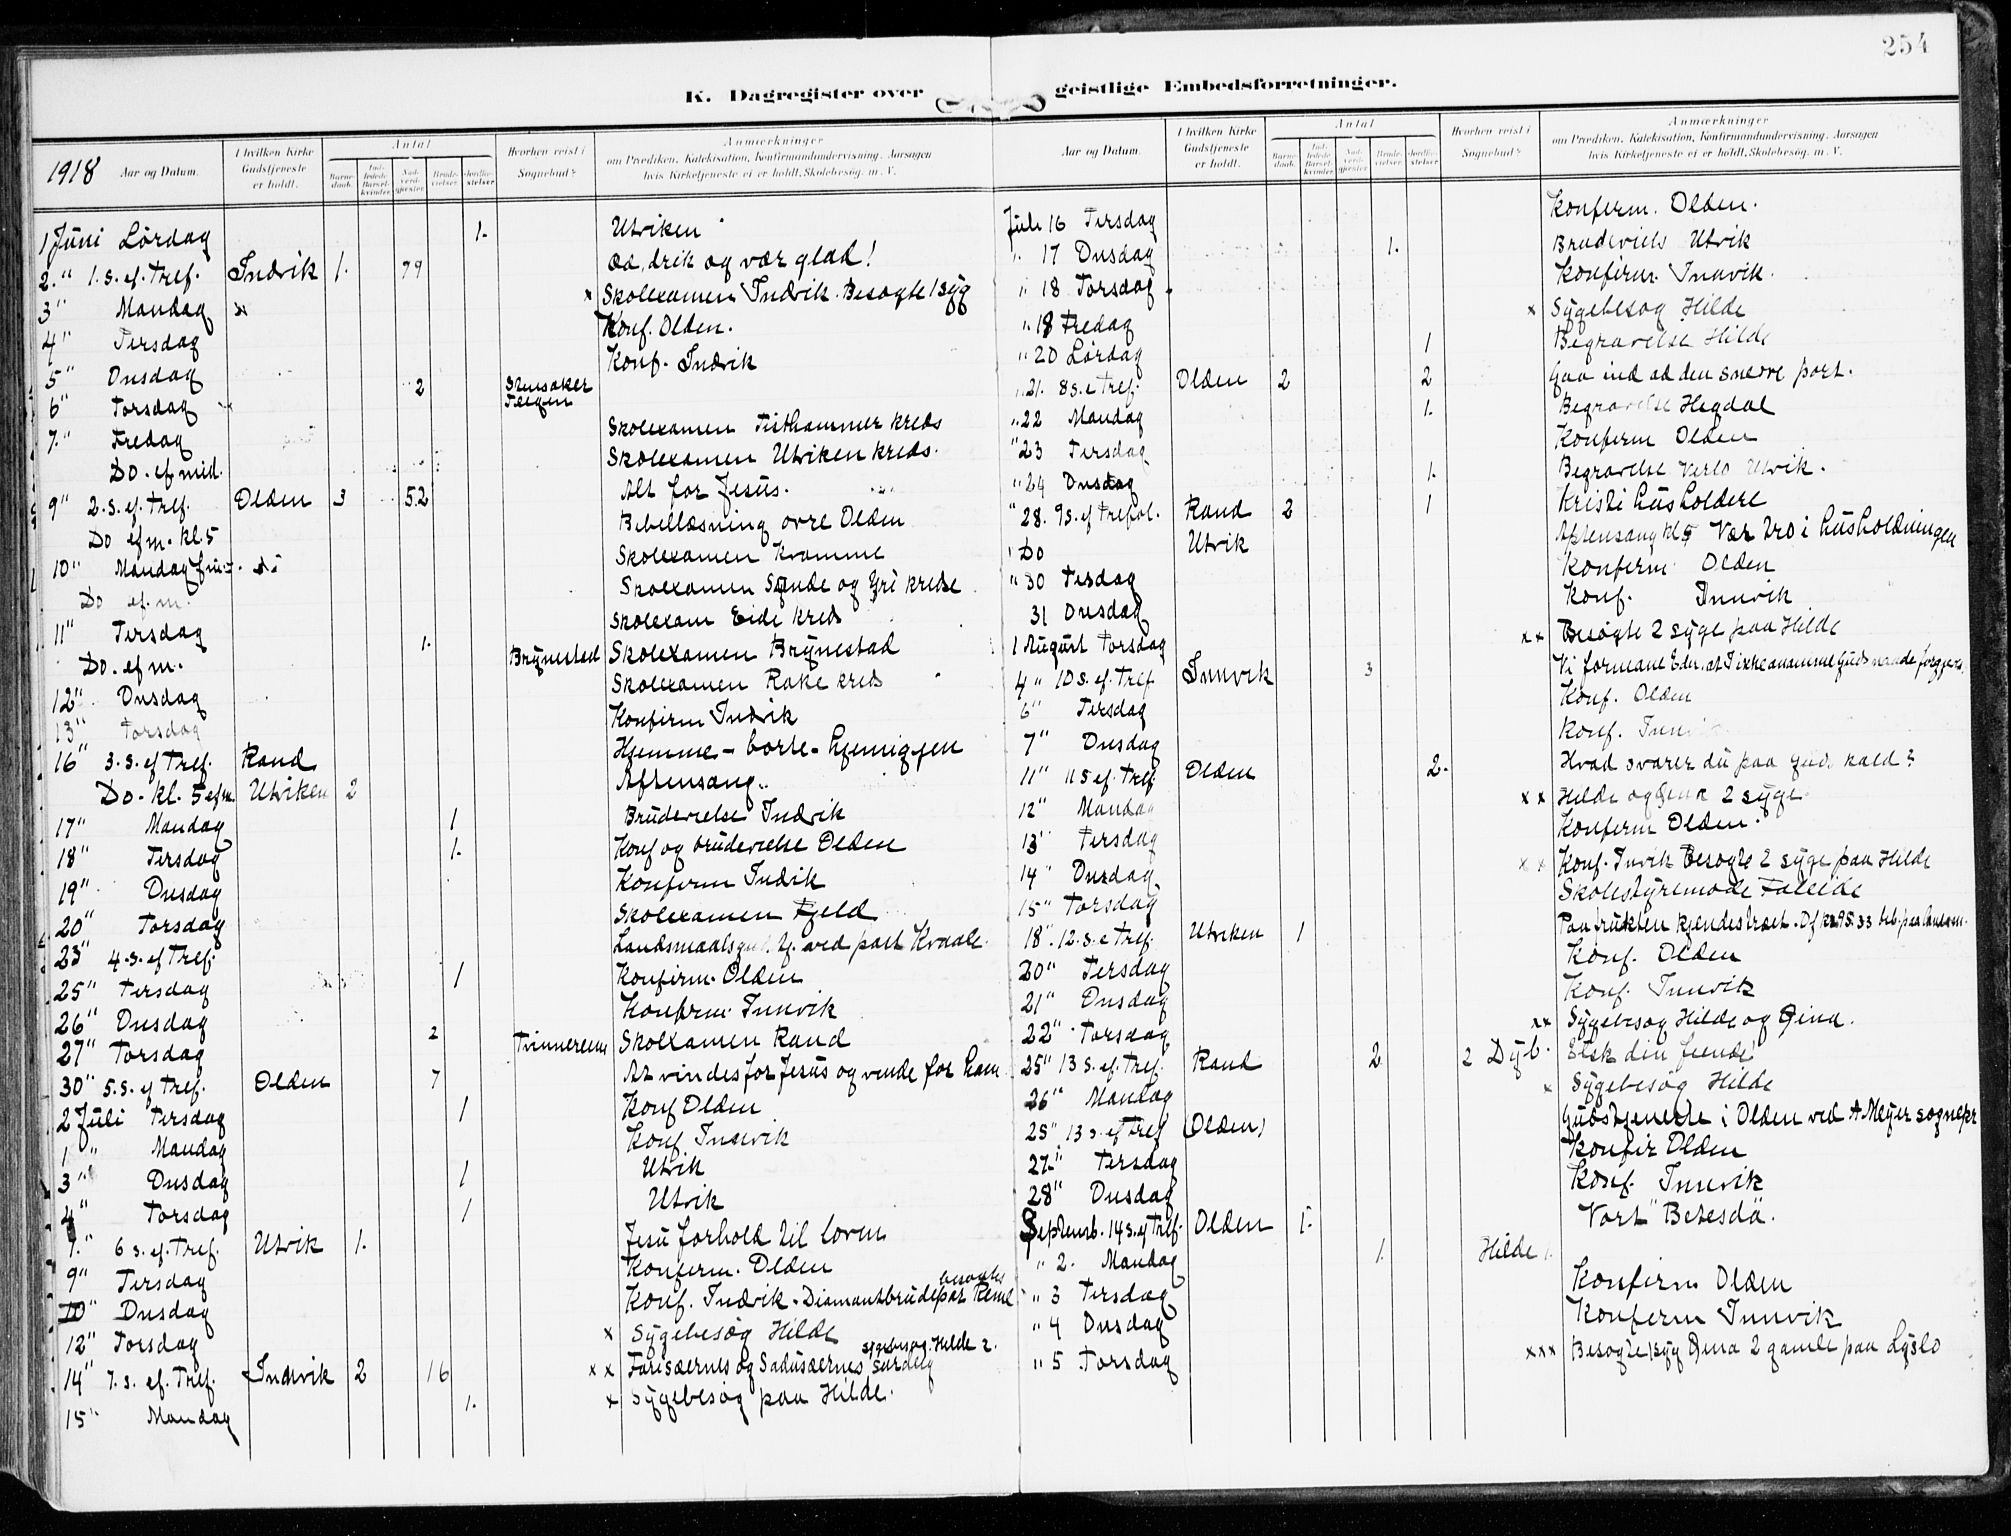 254
K. Dagregister over geistlige Embedsforretninger.
1918 Aar og Datum. I hvilken Kirke Gudstjeneste er holdt. Antal Hvorhen reist i Sognebud? Anmærkninger
Barnedaab. Indledede Barselkvinder Nadverdgjester Brudevielser Jordfæstelser
om Prædiken, Katekisation, Konfirmandundervisning, Aarsagen
hvis Kirketjeneste ei er holdt, Skolebesøg, m. V.
1 Juni Lørdag 1. Utviken
2." 1. s. ef. tref. Indvik 1. 79 Æd, drik og vær glad!
3" Mandag x x Skolexamen Indvik. Besøgte 1 syg
4" Tirsdag Konf. Olden.
5" Onsdag Konf. Indvik
6" Torsdag 2
7." Fredag Skolexamen Tisthammer kreds
Do. ef mid. Skolexamen Utviken kreds.
9" 2. s. ef. tref. Olden 3 52 Alt for Jesus.
Do efm. kl. 5 Bibellæsning øvre Olden
10" Mandag Skolexamen Kvamme
Do ef. m. Skolexamen Sunde og kreds
11" Tirsdag Skolexam Eide kreds
Do. ef m. 1. Brynestad Skolexamen Brynestad
12" Onsdag Skolexamen Rake kreds
13" Torsdag Konfirm Indvik
16" 3. s. ef Tref. Rand Hjemme – borte – hjemigjen
Do. kl. 5 efm. Utviken 2 Aftensang.
17" Mandag 1 Brudevielse Indvik
18" Tirsdag 1. Konf og brudevielse Olden
19" Onsdag Konfirm Indvik
20" Torsdag Skolexamen Fjeld
23" 4. s. ef Tref. Landsmaalsgud. tj. ved past Kvaale.
25" Tirsdag 1 Konfirm. Olden
26" Onsdag Konfirm Innvik
27" Torsdag 2 Tvinnereim Skolexamen Rand
30" 5. s. ef Tref. Olden 7 At vindes for Jesus og vinde for ham
2 Juli Tirsdag 1 Konf Olden
1 " Mandag Konf Innvik
3" Onsdag 1 Utvik
4" Torsdag 1 Utvik
7." 6 s. ef. Tref. Utvik 1. Jesu forhold til loven
9" Tirsdag Konfirm. Olden
10" Onsdag Konf. Indvik. Diamantbrudepar besøgtes
12" Torsdag x Sygebesøg Hilde
14" 7. s. ef. Tref. Indvik 2 16 x x Farisæernes og Sadusæernes surdeig sygebesøg. Hilde 2.
15" Mandag 1. x Sygebesøg paa Hilde.
Aar og Datum. I hvilken Kirke Gudstjeneste er holdt. Antal Hvorhen reist i Sognebud? Anmærkninger
Barnedaab. Indledede Barselkvinder Nadverdgjester Brudevielser Jordfæstelser
om Prædiken, Katekisation, Konfirmandundervisning, Aarsagen
hvis Kirketjeneste ei er holdt, Skolebesøg, m. V.
Juli 16 Tirsdag Konfirm. Olden.
" 17 Onsdag 1. Brudeviels Utvik
" 18 Torsdag Konfirm. Innvik.
" 18 Fredag x Sygebesøg Hilde
" 20 Lørdag 1 Begravelse Hilde
" 21. 8 s. e tref. Olden 2 2 Gaa ind ad den snevre port.
" 22 Mandag 1. Begravelse Hegdal
" 23 Tirsdag Konfirm Olden
" 24 Onsdag 1. Begravelse Verlo Utvik.
" 28. 9 s. ef trefol. Rand 2 1 Kristi husholdere
" Do Utvik Aftensang kl 5 Vær tro i husholdningen
" 30 Tirsdag Konfirm Olden
31 Onsdag Konf. Innvik
1 August Torsdag x x Besøgte 2 syge paa Hilde
4" 10 s. ef. Tref Innvik 3 Vi formane Eder, at I ikke anamme Guds naade forgjeves.
6" Tirsdag Konf. Olden
7" Onsdag Konf. Innvik
11" 11 s ef. tref Olden 2. Hvad svarer du paa Guds kald?
12" Mandag x x Hilde og Gjena 2 syge.
13" Tirsdag Konfirm Olden.
14" Onsdag x x Konf. Invik Besøgte 2 syge paa Hilde
15" Torsdag Skolestyremøde Faleide
18". 12. s. e Tref. Utviken 1 Paa frukten kjendes træet.
20" Tirsdag Konf. Olden
21" Onsdag Konf. Innvik
22" Torsdag xx Sygebesøg Hilde og Gina.
25" 13 s. ef. Tref. Rand 2 2 Dyb. Elsk din fiende!
26" Mandag x Sygebesøg Hilde
25" 13 s. ef Tref (Olden) Gudstjeneste i Olden ved A Meyer sognepr
27" Tirsdag Konfir Olden
28" Onsdag Konf. Innvik
Septemb. 14 s. ef Tref. Olden 1. Vort "Betesda".
" 2. Mandag 1 Hilde 1.
" 3 Tirsdag Konfirm Olden
" 4 Onsdag Konfirm Innvik
" 5 Torsdag xxx Besøgte 1 syg Gina 2 gamle paa Lyslo